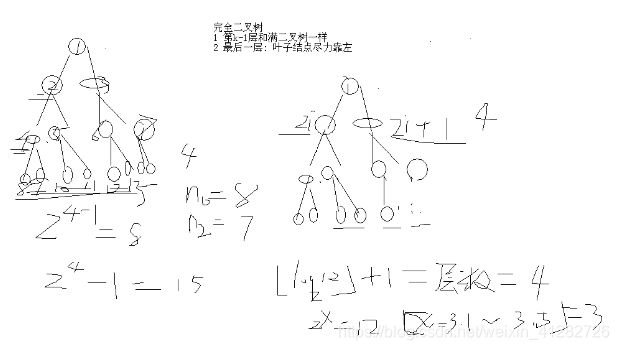 完全二叉树
1 第k-1层和满二叉树一样
2 最后一层: 叶子结点尽力靠左
1
2 3
4 5 6 7
4
n₀=8
n₂=7
2^4-1=8
2^4-1=15
1
2i 2i+1 4
[log₂12]+1=层数=4
2^x=12 [x=3.1~3.5]=3
https://blog.csdn.net/weixin_41282726